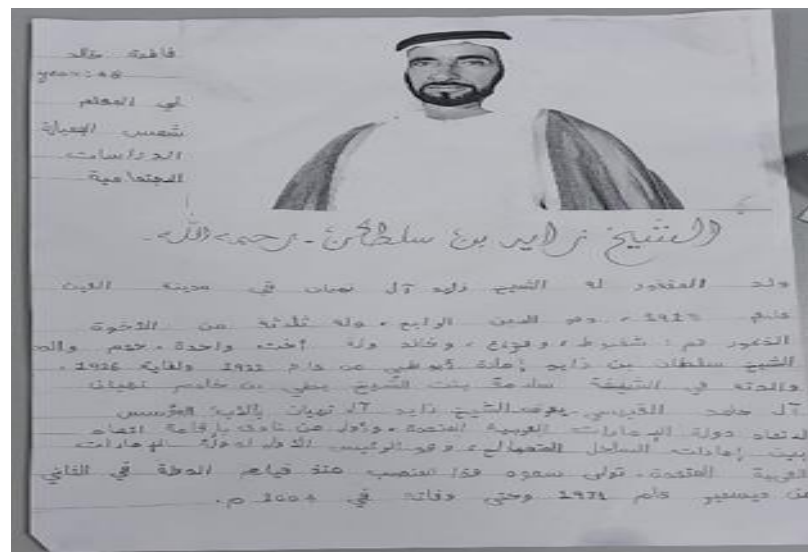 فاطمة خالد
year: 4B
الى المعلم
شمس
الدراسات
الاجتماعية
الشيخ زايد بن سلطان - رحمه الله -
ولد المغفور له الشيخ زايد آل نهيان في مدينة العين
عام ، وهو الابن الرابع ، وله ثلاثة من الأخوة
الذكور هم : شخبوط ، وهزاع ، وخالد وله أخت واحدة ،
الشيخ سلطان بن زايد إمارة أبوظبي من عام 1922 ولغاية 1926 .
والدته هي الشيخة سلامة بنت الشيخ بطي بن خادم نهيان
آل حامد القبيسي . يعرف الشيخ زايد آل نهيان بالأب المؤسس
لاتحاد دولة الإمارات العربية المتحدة ، وأول من نادى بإقامة اتحاد
بين إمارات الساحل المتصالح ، وهو الرئيس الأول لدولة الإمارات
العربية المتحدة . تولى سموه هذا المنصب منذ قيام الدولة في الثاني
من ديسمبر عام 1971 وحتى وفاته في 2004 م .